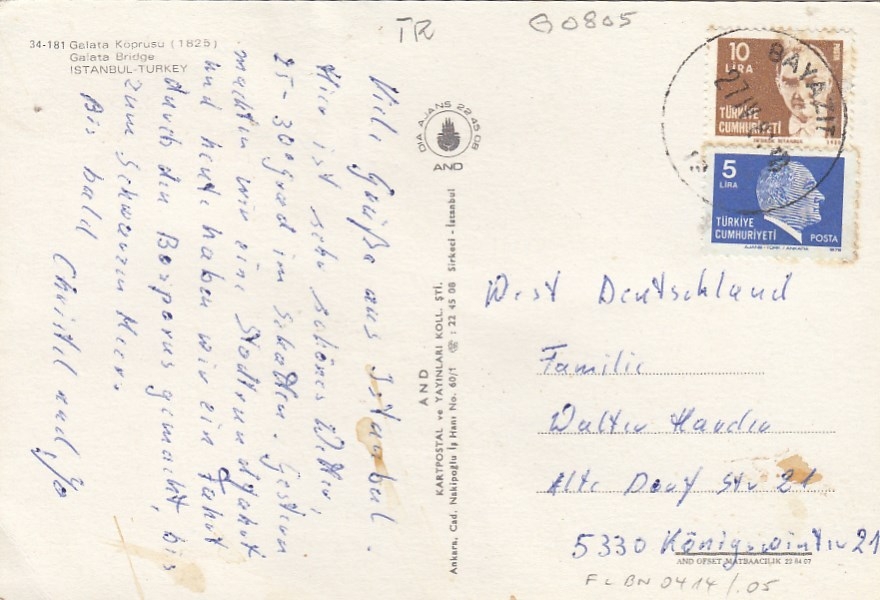 34-181 Galata Köprüsü (1825)
Galata Bridge
İSTANBUL-TURKEY
TR
G0805
Viele Grüße aus Istanbul.
Hier ist sehr schönes Wetter,
25-30° Grad im Schatten. Gestern
machten wir eine Stadtrundfahrt
und heute haben wir ein Fahrt
durch den Bosporus gemacht, bis
zum Schwarzen Meer.
Bis bald Christel und
DİA AJANS 22 45 08
AND
AND
KARTPOSTAL ve YAYINLARI KOLL. ŞTİ.
Ankara, Cad. Nakipoğlu İş Hanı No. 60/1 ☎ : 22 45 08 Sirkeci - İstanbul
10
LİRA
TÜRKİYE
CUMHURİYETİ
BAYAZIT
5
LİRA
TÜRKİYE
CUMHURİYETİ
POSTA
West Deutschland
Familie
Walter
Alte Str 21
5330 Königswinter 21
AND OFSET MATBAACILIK 23 64 07
FLBN0414/.05